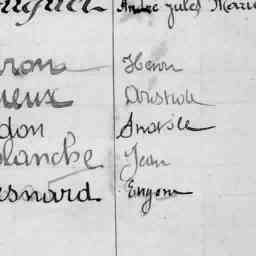 André Jules Marie
ron Henri
ieux Aristide
don Anatole
lanche Jean
snard Eugène